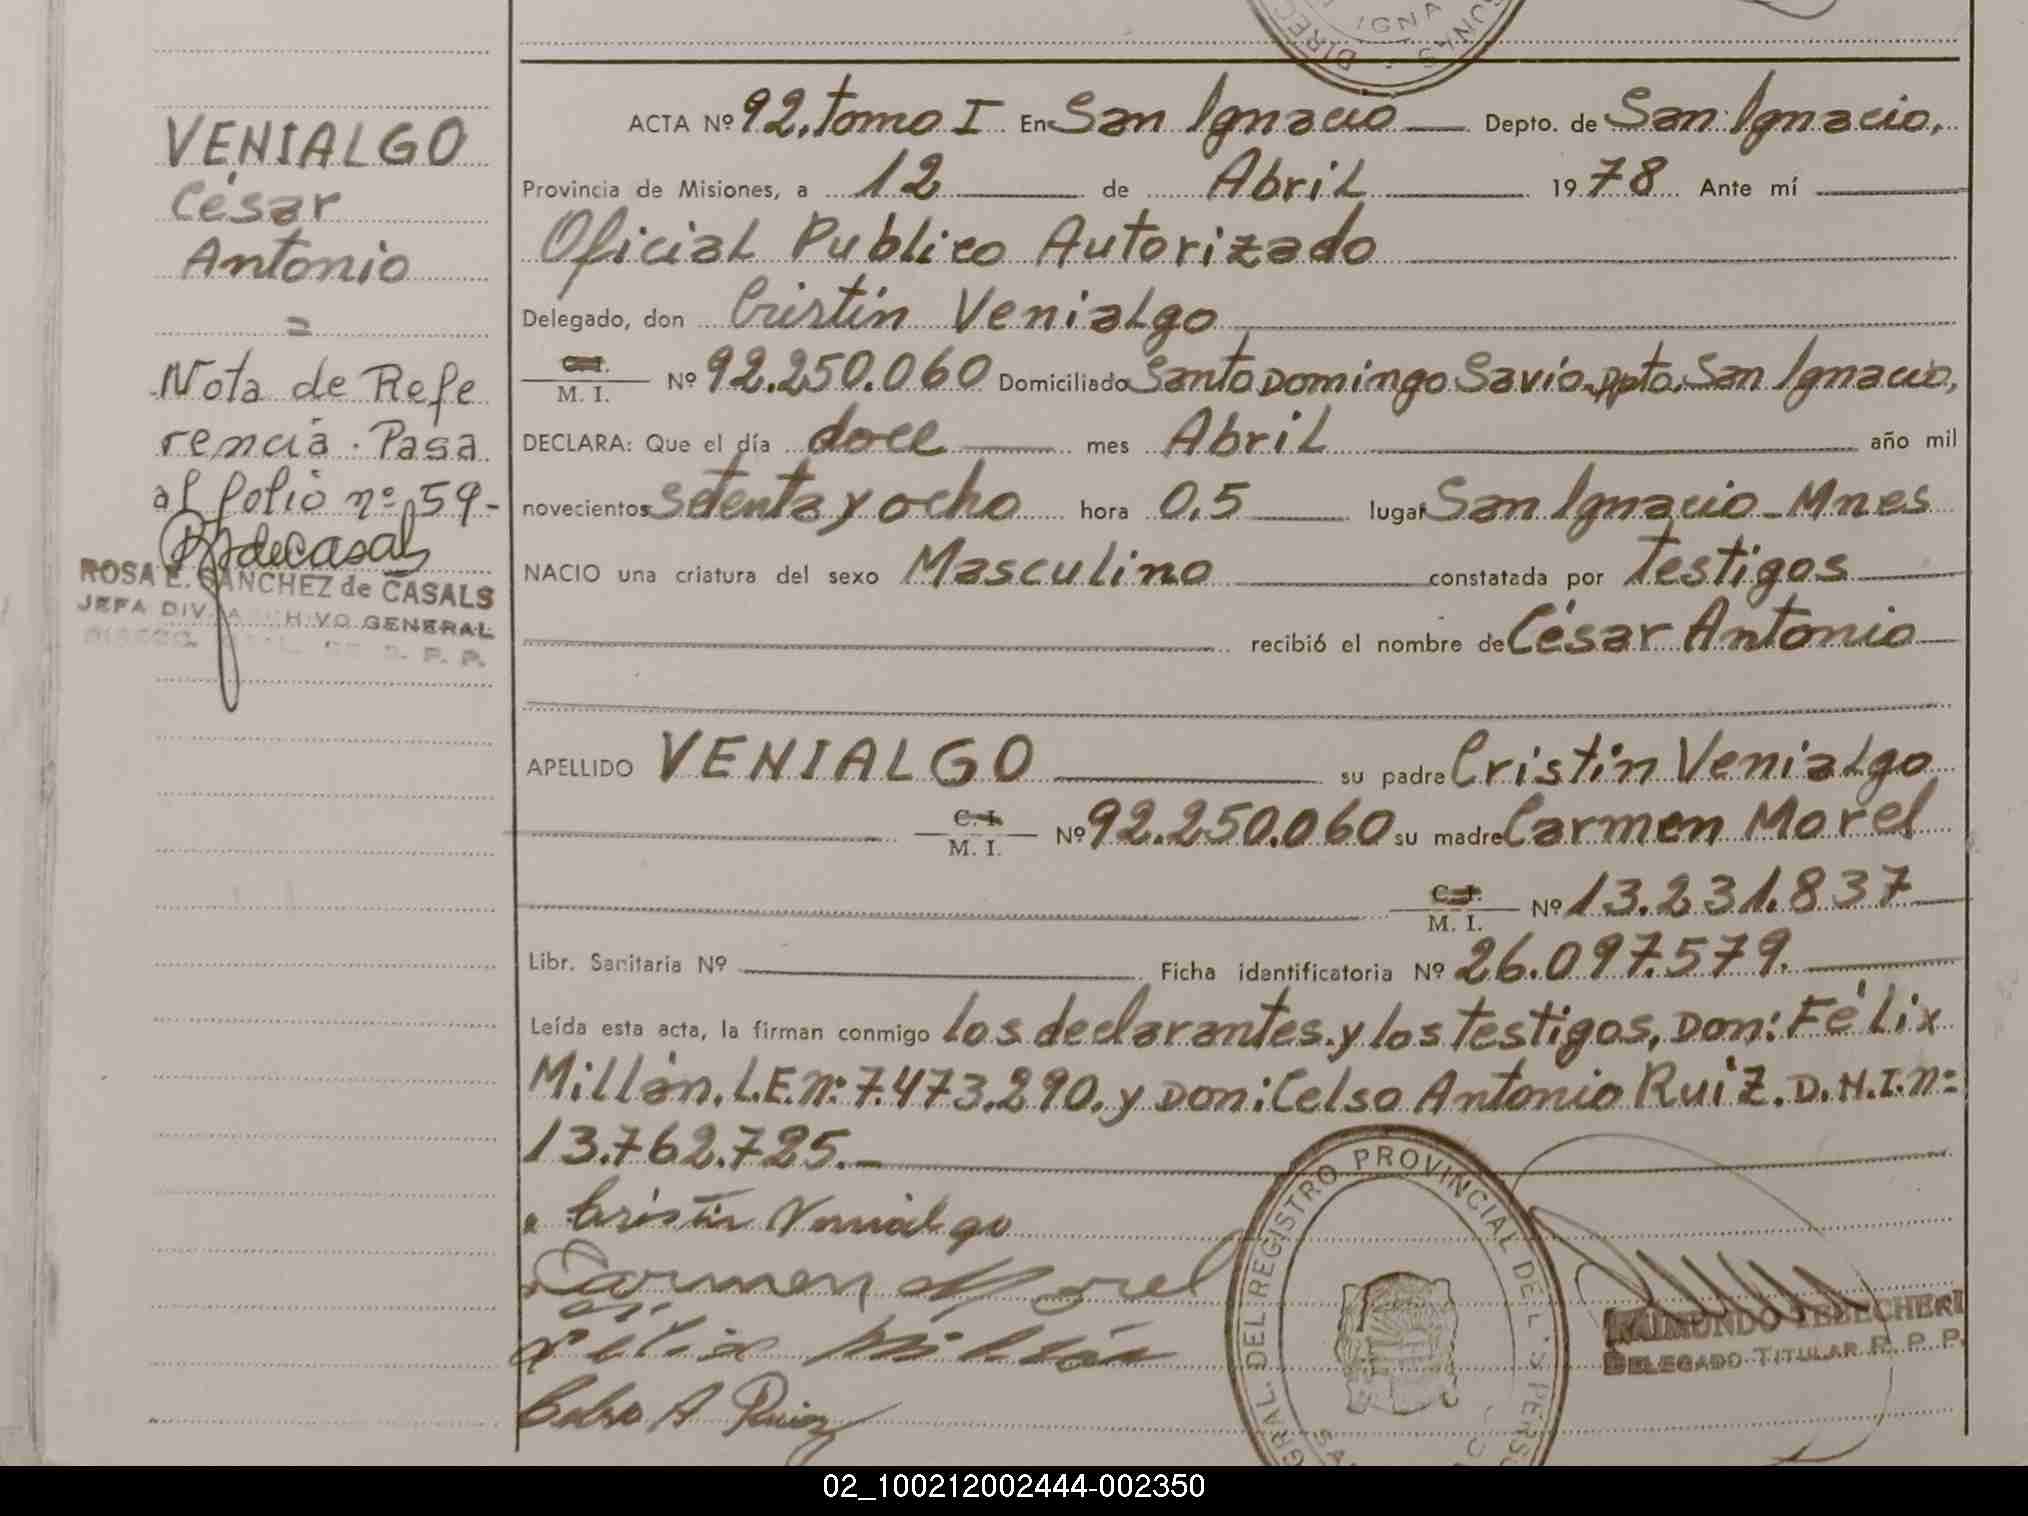 VENIALGO
César
Antonio
=
Nota de Refe
rencia. Pasa
al folio nº 59-
ROSA E. SANCHEZ de CASALS
JEFA DIV. ARCHIVO GENERAL
R. P. P.
ACTA Nº 92. Tomo I En San Ignacio Depto. de San Ignacio,
Provincia de Misiones, a 12 de Abril 1978 Ante mí
Oficial Publico Autorizado
Delegado, don Cristin Venialgo
C. I.
M. I. Nº 92.250.060 Domiciliado Santo Domingo Savio. Dpto. San Ignacio,
DECLARA: Que el día doce mes Abril año mil
novecientos setenta y ocho hora 0,5 lugar San Ignacio - Mnes
NACIO una criatura del sexo Masculino constatada por Testigos
recibió el nombre de César Antonio
APELLIDO VENIALGO su padre Cristin Venialgo
C. I.
M. I. Nº 92.250.060 su madre Carmen Morel
C. I.
M. I. Nº 13.231.837
Libr. Sanitaria Nº Ficha identificatoria Nº 26.097.579.
Leída esta acta, la firman conmigo los declarantes y los testigos, Don: Félix
Millán. L.E. n: 7.473.290. y Don: Celso Antonio Ruiz. D.N.I. n:
13.762.725.-
Cristin Venialgo
Carmen Morel
Félix Millán
Celso A Ruiz
GRAL. DEL REGISTRO PROVINCIAL DE L'S PERSO
RAIMUNDO TEBECHERI
DELEGADO TITULAR R. P. P.
02_100212002444-002350